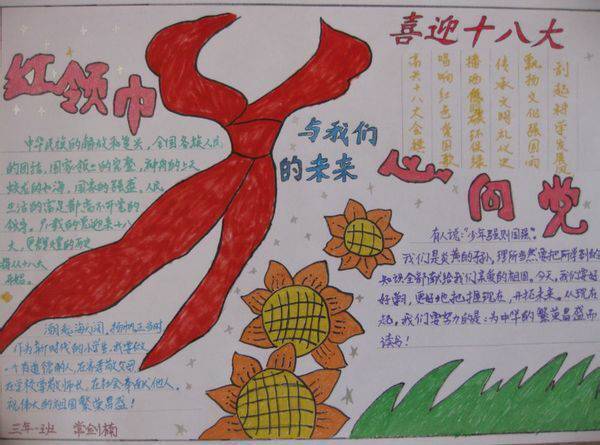 红领巾
中华民族的解放和复兴，全国各族人民
的团结，国家领土的完整，神舟的上天
蛟龙的入海，国家的强盛，人民
生活的富足都离不开党的
领导
大，更辉煌的历史
将从十八大
开始。
潮起海天阔，扬帆正当时
作为新时代的小学生，我要做
一个有道德的人，在家孝敬父母
在学校尊敬师长，在社会奉献他人。
祝伟大的祖国繁荣昌盛！
三年一班 常剑楠
与我们
的未来
喜迎十八大
高兴十八大会标
唱响红色爱国歌
播洒 环促绿
传承文明礼仪史
文化强国雨
科学发展
心向党
有人说：“少年强则国强”。
我们是炎黄的子孙，理所当然要把所学到的
知识全部献给我们亲爱的祖国，今天，我们要好
好学习，更好地把握现在，开拓未来。从现在
起，我们要努力的是：为中华的繁荣昌盛而
读书！